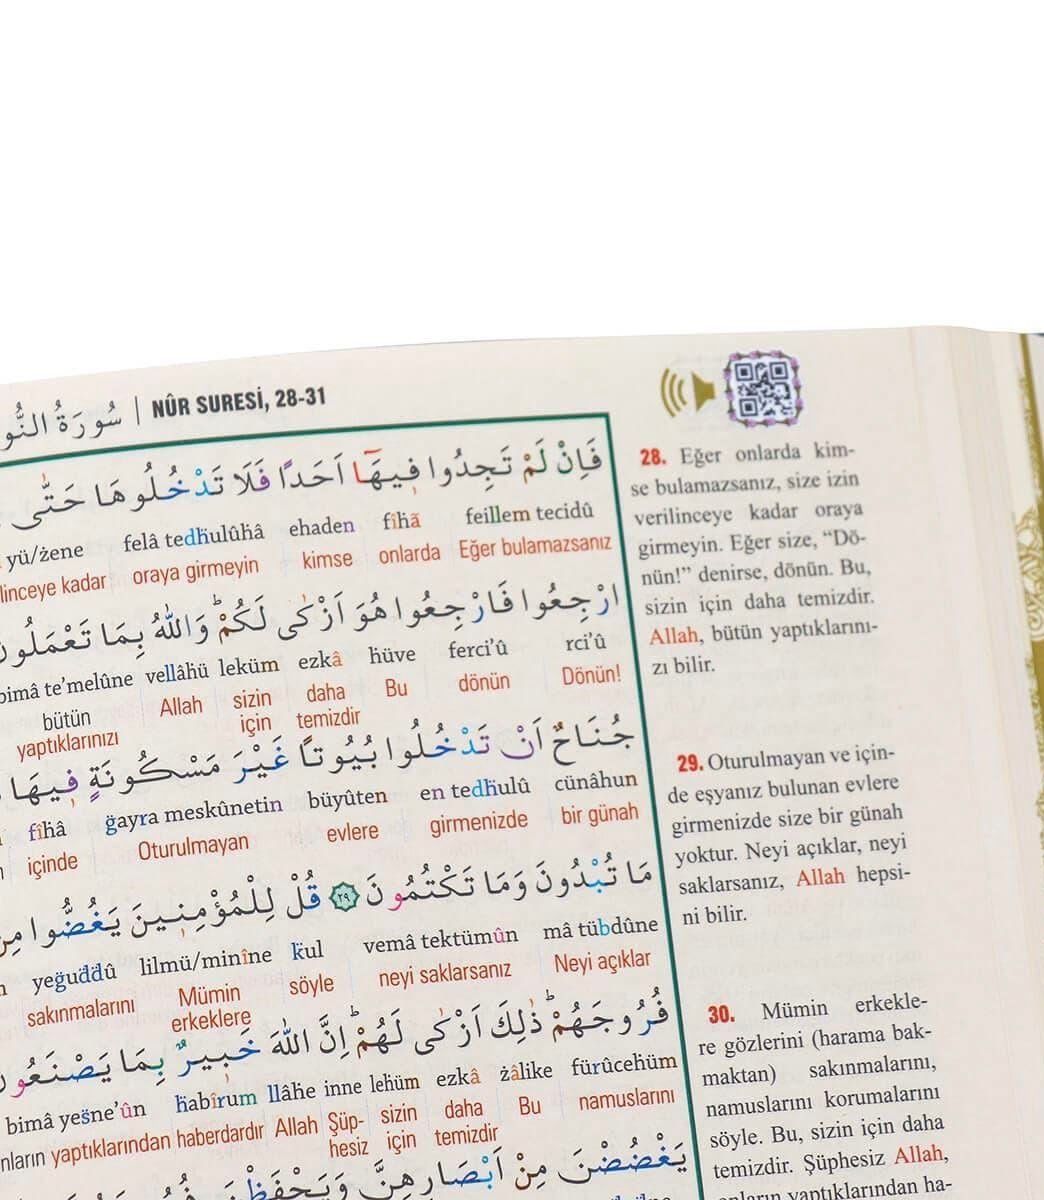 سُورَةُ النُّو | NÛR SURESİ, 28-31
فَاِنْ لَمْ تَجِدُوا فٖيهَٓا اَحَدًا فَلَا تَدْخُلُوهَا حَتّٰى
feillem tecidû fîhã ehaden felâ tedḣulûhâ yü/żene
Eğer bulamazsanız onlarda kimse oraya girmeyin linceye kadar
ارْجِعُوا فَارْجِعُوا هُوَ اَزْكٰى لَكُمْ وَاللّٰهُ بِمَا تَعْمَلُونَ
rci'û ferci'û hüve ezkâ leküm vellâhü bimâ te'melûne
Dönün! dönün Bu daha temizdir sizin için Allah bütün yaptıklarınızı
جُنَاحٌ اَنْ تَدْخُلُوا بُيُوتًا غَيْرَ مَسْكُونَةٍ فٖيهَا
cünâhun en tedḣulû büyûten ğayra meskûnetin fîhâ
bir günah girmenizde evlere Oturulmayan içinde
مَا تُبْدُونَ وَمَا تَكْتُمُونَ ﴿٢٩﴾ قُلْ لِلْمُؤْمِنٖينَ يَغُضُّوا مِنْ
mâ tübdûne vemâ tektümûn ḱul lilmü/minîne yeğuddû
Neyi açıklar neyi saklarsanız söyle Mümin erkeklere sakınmalarını
فُرُوجَهُمْ ذٰلِكَ اَزْكٰى لَهُمْ اِنَّ اللّٰهَ خَبٖيرٌ بِمَا يَصْنَعُونَ
fürûcehüm żâlike ezkâ lehüm inne llâhe ḣabîrum bimâ yeṡne'ûn
namuslarını Bu daha temizdir sizin için Şüphesiz Allah haberdardır yaptıklarından nların
يَغْضُضْنَ مِنْ اَبْصَارِهِنَّ وَيَحْفَظْنَ
28. Eğer onlarda kim-
se bulamazsanız, size izin
verilinceye kadar oraya
girmeyin. Eğer size, “Dö-
nün!” denirse, dönün. Bu,
sizin için daha temizdir.
Allah, bütün yaptıklarını-
zı bilir.
29. Oturulmayan ve için-
de eşyanız bulunan evlere
girmenizde size bir günah
yoktur. Neyi açıklar, neyi
saklarsanız, Allah hepsi-
ni bilir.
30. Mümin erkekle-
re gözlerini (harama bak-
maktan) sakınmalarını,
namuslarını korumalarını
söyle. Bu, sizin için daha
temizdir. Şüphesiz Allah,
onların yaptıklarından ha-